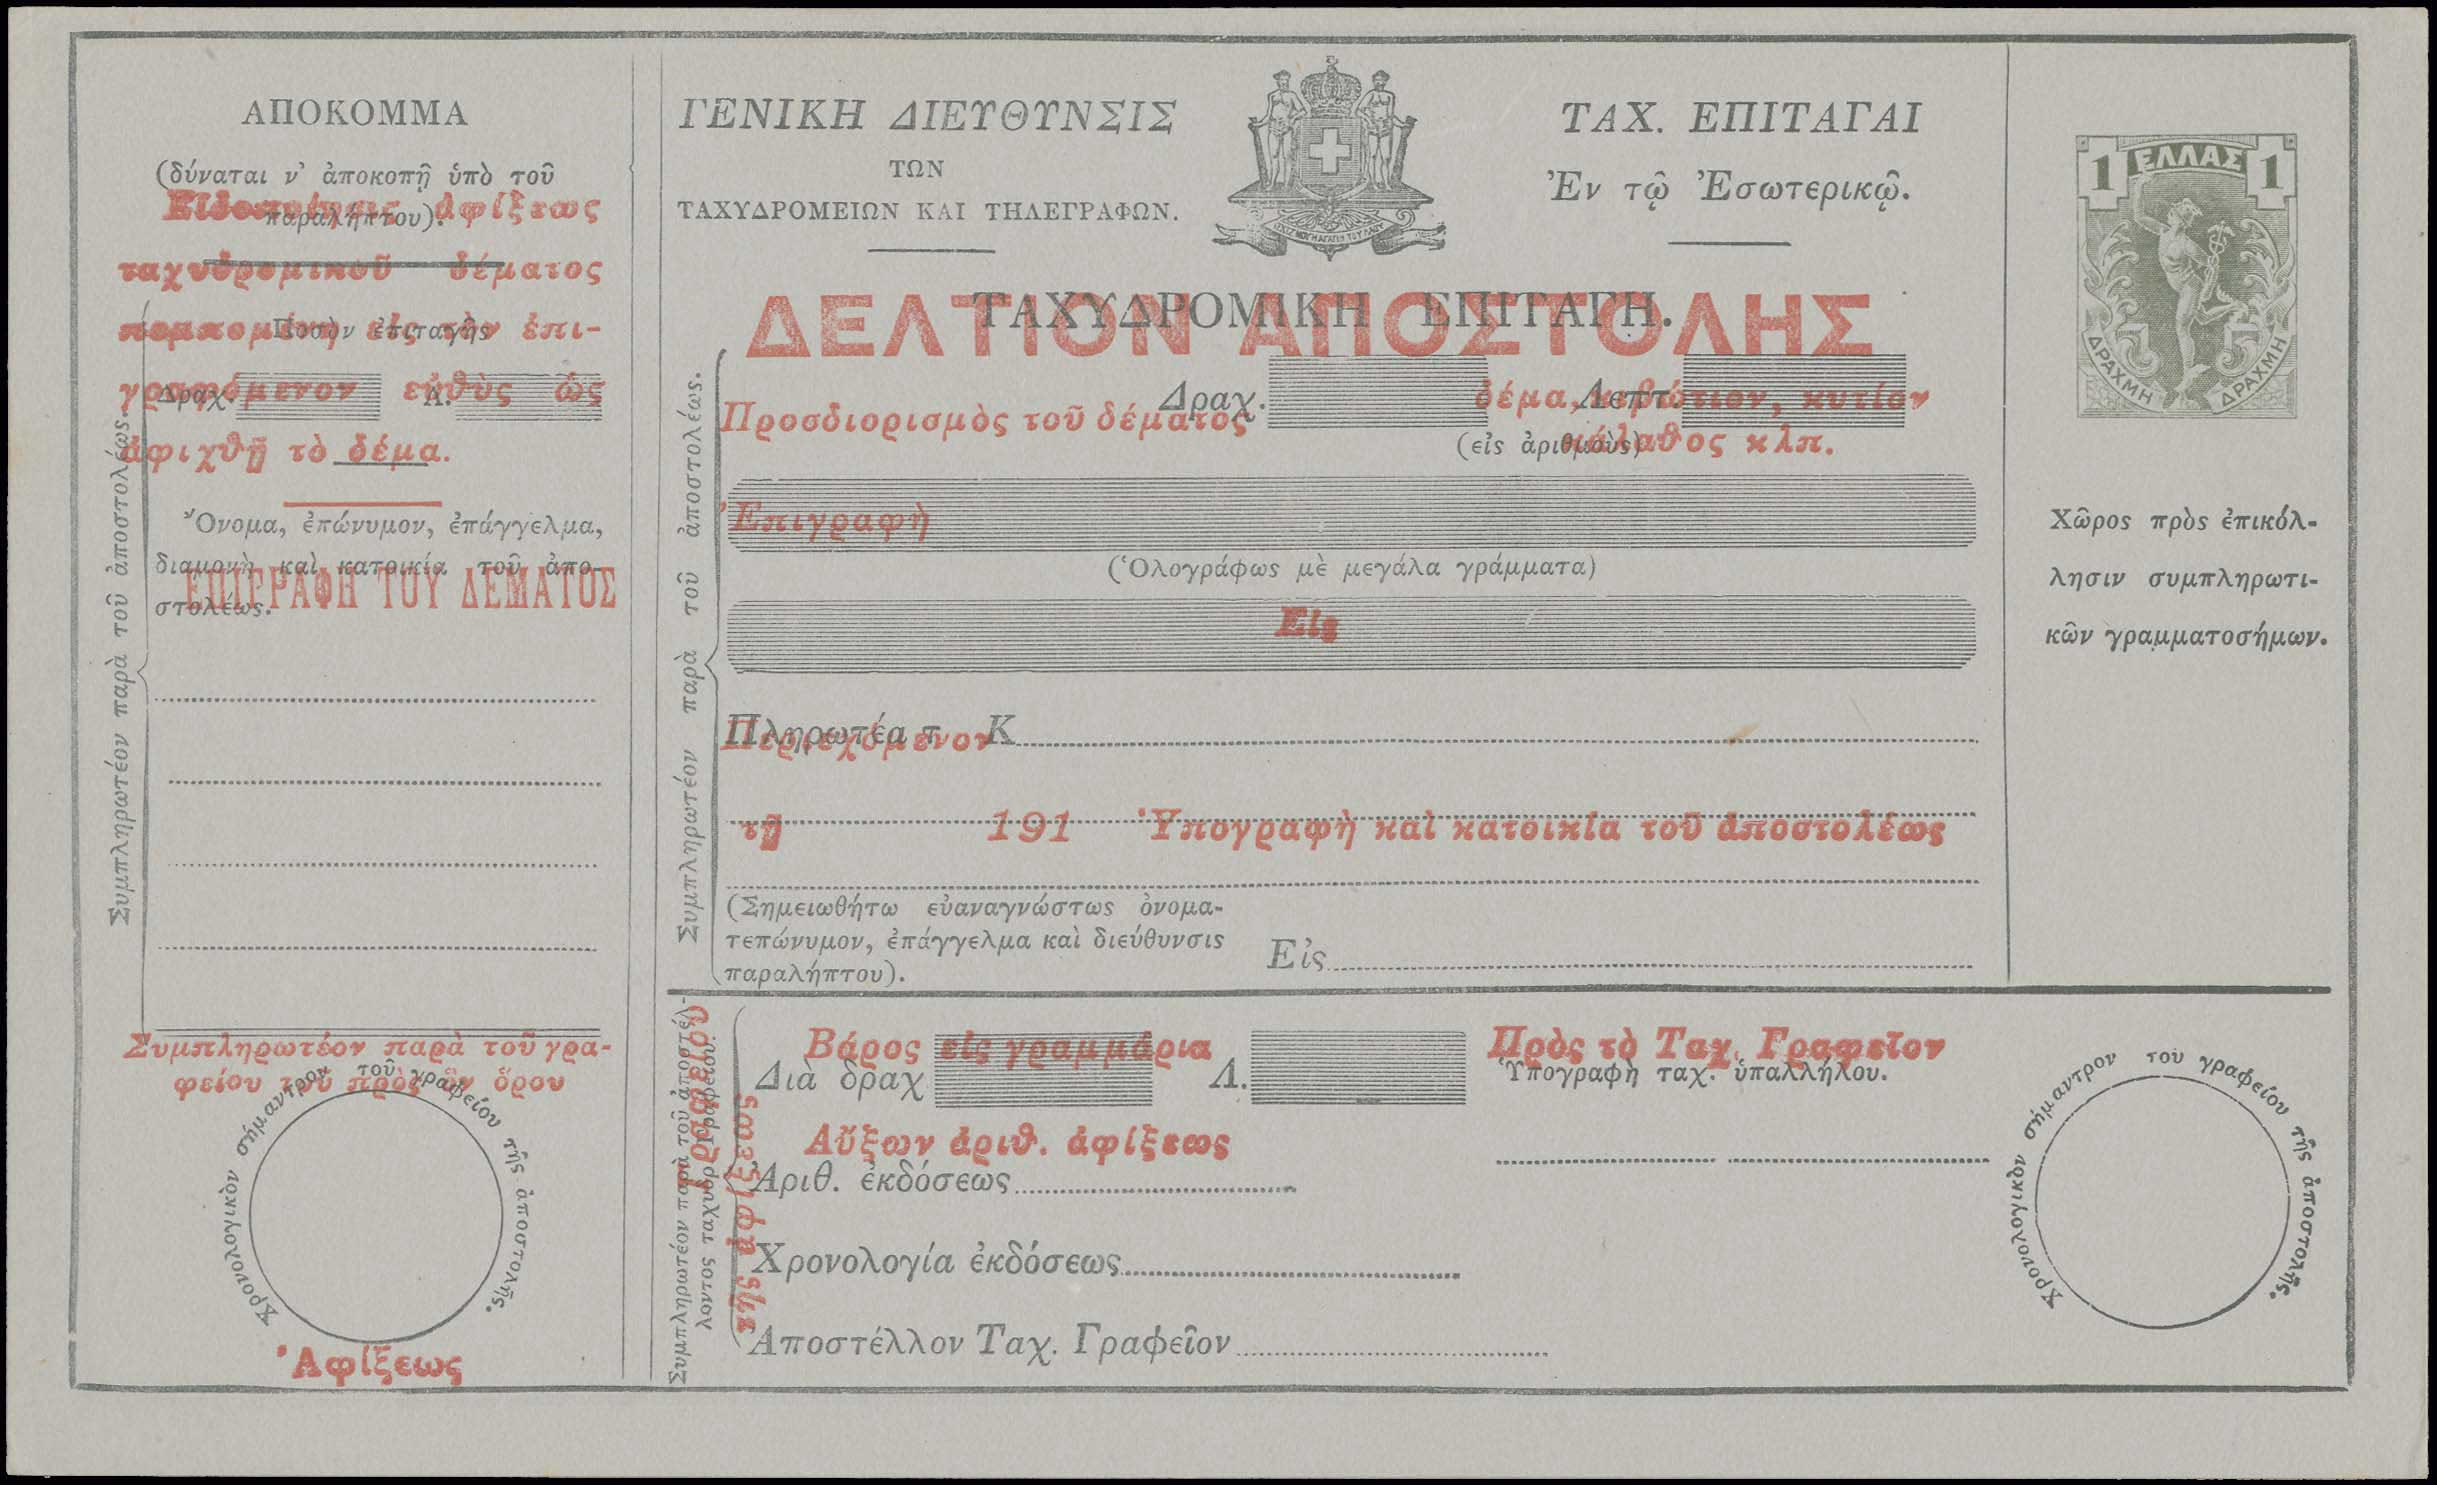 ΑΠΟΚΟΜΜΑ
(δύναται ν' ἀποκοπῇ ὑπὸ τοῦ
παραλήπτου).
Εἰδοποίησις ἀφίξεως
ταχυδρομικοῦ δέματος
πεμπομένη εἰς τὸν ἐπι-
γραφόμενον εὐθὺς ὡς
ἀφιχθῇ τὸ δέμα.
Ποσὸν ἐπιταγῆς
Δραχ. Λ.
Ὄνομα, ἐπώνυμον, ἐπάγγελμα,
διαμονὴ καὶ κατοικία τοῦ ἀπο-
στολέως.
ΕΠΙΓΡΑΦΗ ΤΟΥ ΔΕΜΑΤΟΣ
Συμπληρωτέον παρὰ τοῦ ἀποστολέως.
Συμπληρωτέον παρὰ τοῦ γρα-
φείου τοῦ πρὸς ὃν ὅρου
Χρονολογικὸν σήμαντρον τοῦ γραφείου τῆς ἀποστολῆς.
Ἀφίξεως
ΓΕΝΙΚΗ ΔΙΕΥΘΥΝΣΙΣ
ΤΩΝ
ΤΑΧΥΔΡΟΜΕΙΩΝ ΚΑΙ ΤΗΛΕΓΡΑΦΩΝ.
ΙΣΧΥΣ ΜΟΥ Η ΑΓΑΠΗ ΤΟΥ ΛΑΟΥ
ΤΑΧ. ΕΠΙΤΑΓΑΙ
Ἐν τῷ Ἐσωτερικῷ.
ΤΑΧΥΔΡΟΜΙΚΗ ΕΠΙΤΑΓΗ.
ΔΕΛΤΙΟΝ ΑΠΟΣΤΟΛΗΣ
Δραχ. Λεπτ.
(εἰς ἀριθμοὺς)
Προσδιορισμὸς τοῦ δέματος
δέμα, κιβώτιον, κυτίον
κάλαθος κλπ.
Ἐπιγραφὴ
(Ὁλογράφως μὲ μεγάλα γράμματα)
Εἰς
Πληρωτέα τ Κ
Περιεχόμενον
τῇ 191 Ὑπογραφὴ καὶ κατοικία τοῦ ἀποστολέως
(Σημειωθήτω εὐαναγνώστως ὀνομα-
τεπώνυμον, ἐπάγγελμα καὶ διεύθυνσις
παραλήπτου).
Εἰς
Συμπληρωτέον παρὰ τοῦ ἀποστολέως.
Συμπληρωτέον παρὰ τοῦ ἀποστέλ-
λοντος ταχυδρ. Γραφείου.
Γραφείου
τῆς ἀφίξεως
Βάρος εἰς γραμμάρια
Διὰ δραχ Λ.
Αὔξων ἀριθ. ἀφίξεως
Ἀριθ. ἐκδόσεως
Χρονολογία ἐκδόσεως
Ἀποστέλλον Ταχ. Γραφεῖον
Πρὸς τὸ Ταχ. Γραφεῖον
Ὑπογραφὴ ταχ. ὑπαλλήλου.
1 ΕΛΛΑΣ 1
ΔΡΑΧΜΗ ΔΡΑΧΜΗ
Χῶρος πρὸς ἐπικόλ-
λησιν συμπληρωτι-
κῶν γραμματοσήμων.
Χρονολογικὸν σήμαντρον τοῦ γραφείου τῆς ἀποστολῆς.